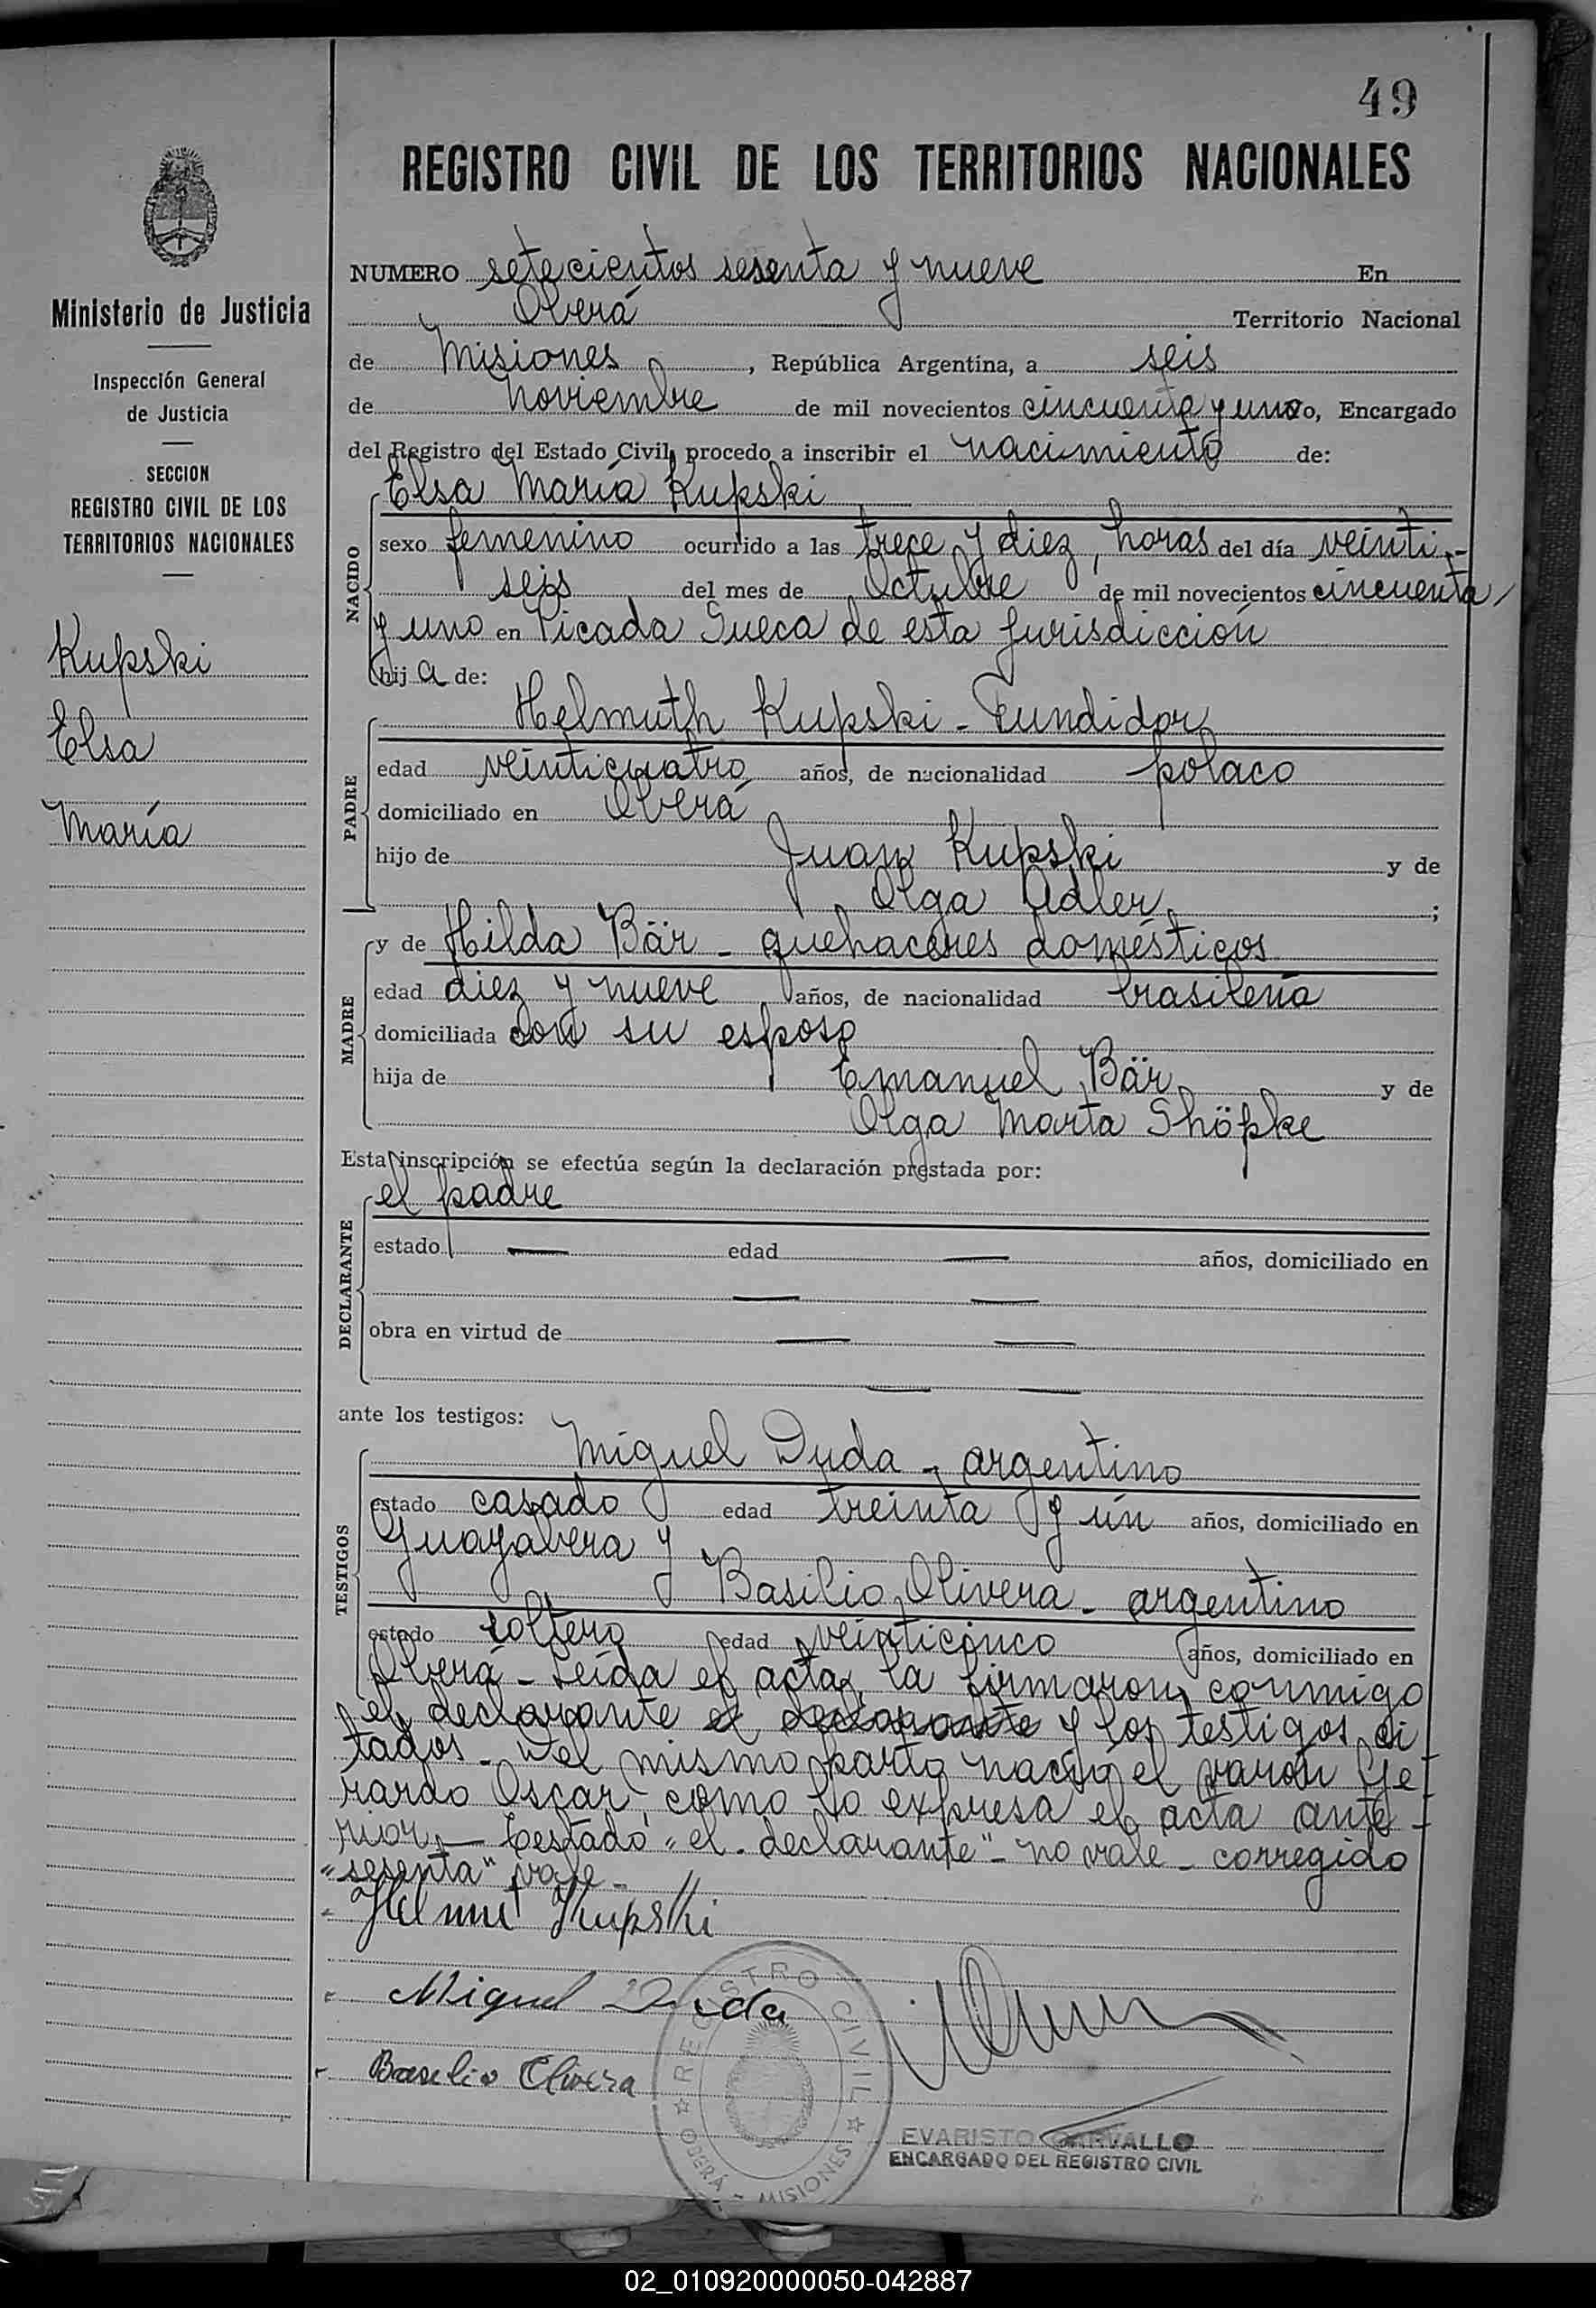 49
REGISTRO CIVIL DE LOS TERRITORIOS NACIONALES
Ministerio de Justicia
Inspección General
de Justicia
SECCION
REGISTRO CIVIL DE LOS
TERRITORIOS NACIONALES
Kupski
Elsa
María
NUMERO setecientos sesenta y nueve En
Oberá Territorio Nacional
de Misiones, República Argentina, a seis
de noviembre de mil novecientos cincuenta y uno, Encargado
del Registro del Estado Civil, procedo a inscribir el nacimiento de:
NACIDO
Elsa María Kupski
sexo femenino ocurrido a las trece y diez, horas del día veinti-
seis del mes de Octubre de mil novecientos cincuenta
y uno en Picada Sueca de esta jurisdicción
hij a de:
PADRE
Helmuth Kupski - Fundidor
edad veinticuatro años, de nacionalidad polaco
domiciliado en Oberá
hijo de Juan Kupski y de
Olga Adler ;
MADRE
y de Hilda Bär - quehaceres domésticos
edad diez y nueve años, de nacionalidad brasileña
domiciliada con su esposo
hija de Emanuel Bär y de
Olga Marta Shöpke
Esta inscripción se efectúa según la declaración prestada por:
DECLARANTE
el padre
estado — edad — años, domiciliado en
— —
obra en virtud de — —
— —
ante los testigos:
TESTIGOS
Miguel Duda - argentino
estado casado edad treinta y un años, domiciliado en
Guayabera y
Basilio Olivera - argentino
estado soltero edad veinticinco años, domiciliado en
Oberá - Leída el acta, la firmaron conmigo
el declarante el declarante y los testigos ci
tados - Del mismo parto nació el varón Ge-
rardo Oscar, como lo expresa el acta ante-
rior. — Testado "el declarante" - no vale - corregido
"sesenta" vale -
Helmut Kupski
Miguel Duda
Basilio Olivera
REGISTRO CIVIL
OBERÁ - MISIONES
EVARISTO CARVALLO
ENCARGADO DEL REGISTRO CIVIL
02_010920000050-042887